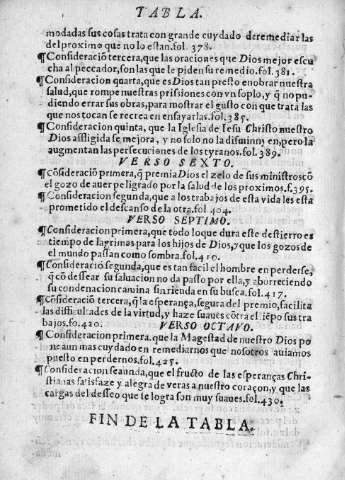 TABLA.
modadas sus cosas trata con grande cuydado de remediar las
del proximo que no lo estan. fol. 378.
¶Consideracio tercera, que las oraciones que Dios mejor escu
cha al peccador, son las que le piden su remedio. fol. 381.
¶Consideracion quarta, que es Dios tan presto en obrar nuestra
salud, que rompe nuestras prisiones con vn soplo, y q̃ no pu-
diendo errar sus obras, para mostrar el gusto con que trata las
que nos tocan se recrea en ensayarlas. fol. 385.
¶Consideracion quinta, que la Iglesia de Iesu Christo nuestro
Dios affligida se mejora, y no solo no la disminuyen, pero la
augmentan las persecuciones de los tyranos. fol. 389.
VERSO SEXTO.
¶Cõsideraciõ primera, q̃ premia Dios el zelo de sus ministros cõ
el gozo de auer peligrado por la salud de los proximos. f. 395.
¶Consideracion segunda, que a los trabajos de esta vida les esta
prometido el descanso de la otra. fol 404.
VERSO SEPTIMO.
¶Consideracion primera, que todo lo que dura este destierro es
tiempo de lagrimas para los hijos de Dios, y que los gozos de
el mundo passan como sombra. fol. 410.
¶Consideraciõ segunda, que es tan facil el hombre en perderse,
q̃ cõ dessear su saluacion no da passo por ella, y aborreciendo
su condenacion camina sin rienda en su busca. fol. 417.
¶Cõsideraciõ tercera, q̃ la esperança, segura del premio, facilita
las dificultades de la virtud, y haze suaues cõtra el tiẽpo sus tra
bajos. fo. 420. VERSO OCTAVO.
¶Consideracion primera, que la Magestad de nuestro Dios po
ne aun mas cuydado en remediarnos que nosotros auiamos
puesto en perdernos. fol. 425.
¶Consideracion segunda, que el fructo de las esperanças Chri-
stianas satisfaze y alegra de veras a nuestro coraçon, y que las
cargas del desseo que se logra son muy suaues. fol. 430.
FIN DE LA TABLA.